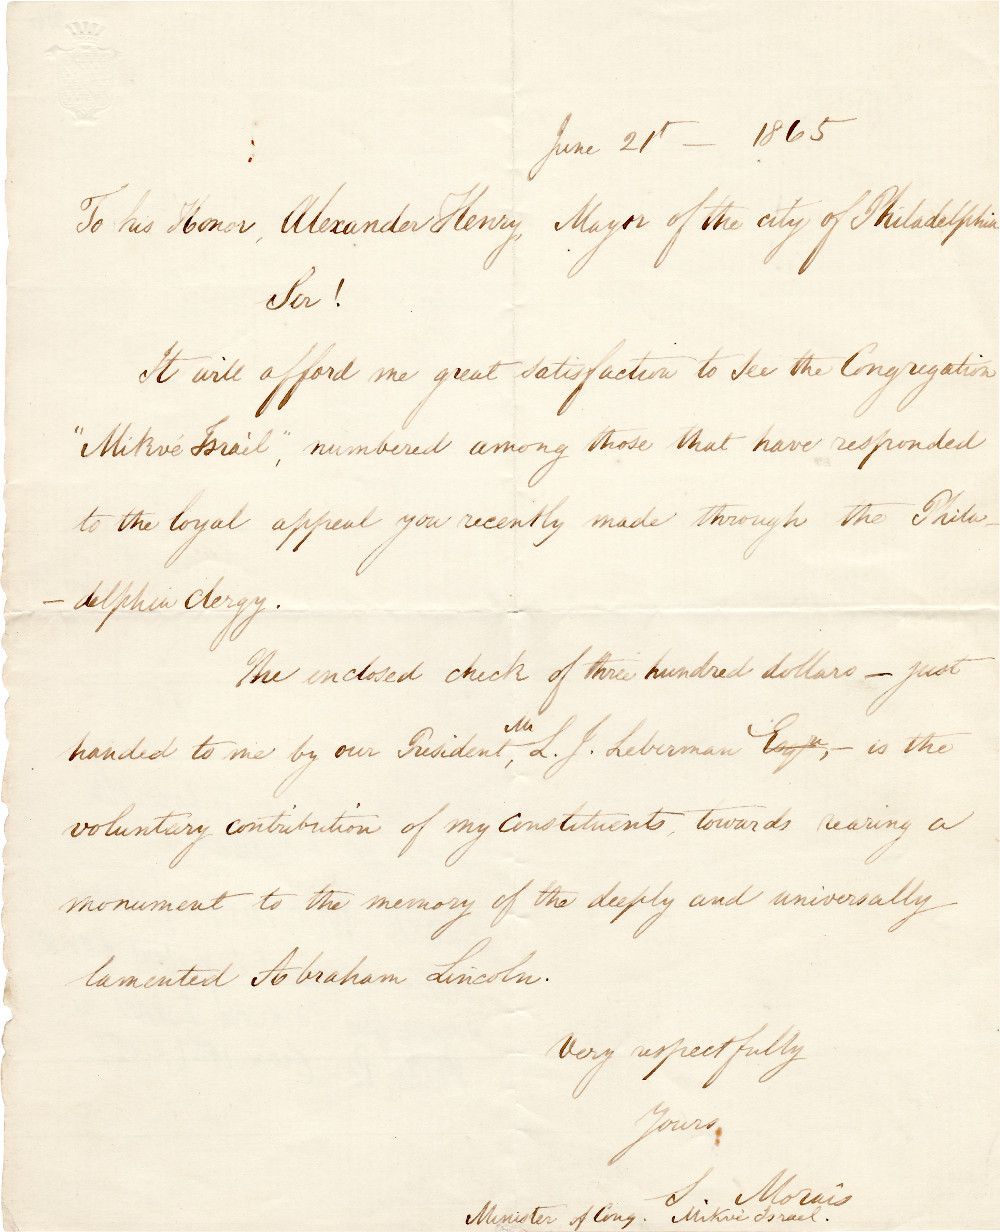 June 21st – 1865
To his Honor, Alexander Henry, Mayor of the city of Philadelphia
Sir!
It will afford me great satisfaction to see the Congregation
"Mikvé Israèl", numbered among those that have responded
to the loyal appeal you recently made through the Phila-
- delphia clergy.
The enclosed check of three hundred dollars – just
handed to me by our President, Mr L. J. Leberman Esqr, – is the
voluntary contribution of my constituents, towards rearing a
monument to the memory of the deeply and universally
lamented Abraham Lincoln.
Very respectfully
Yours
S. Morais
Minister of Cong. Mikvé Israel.